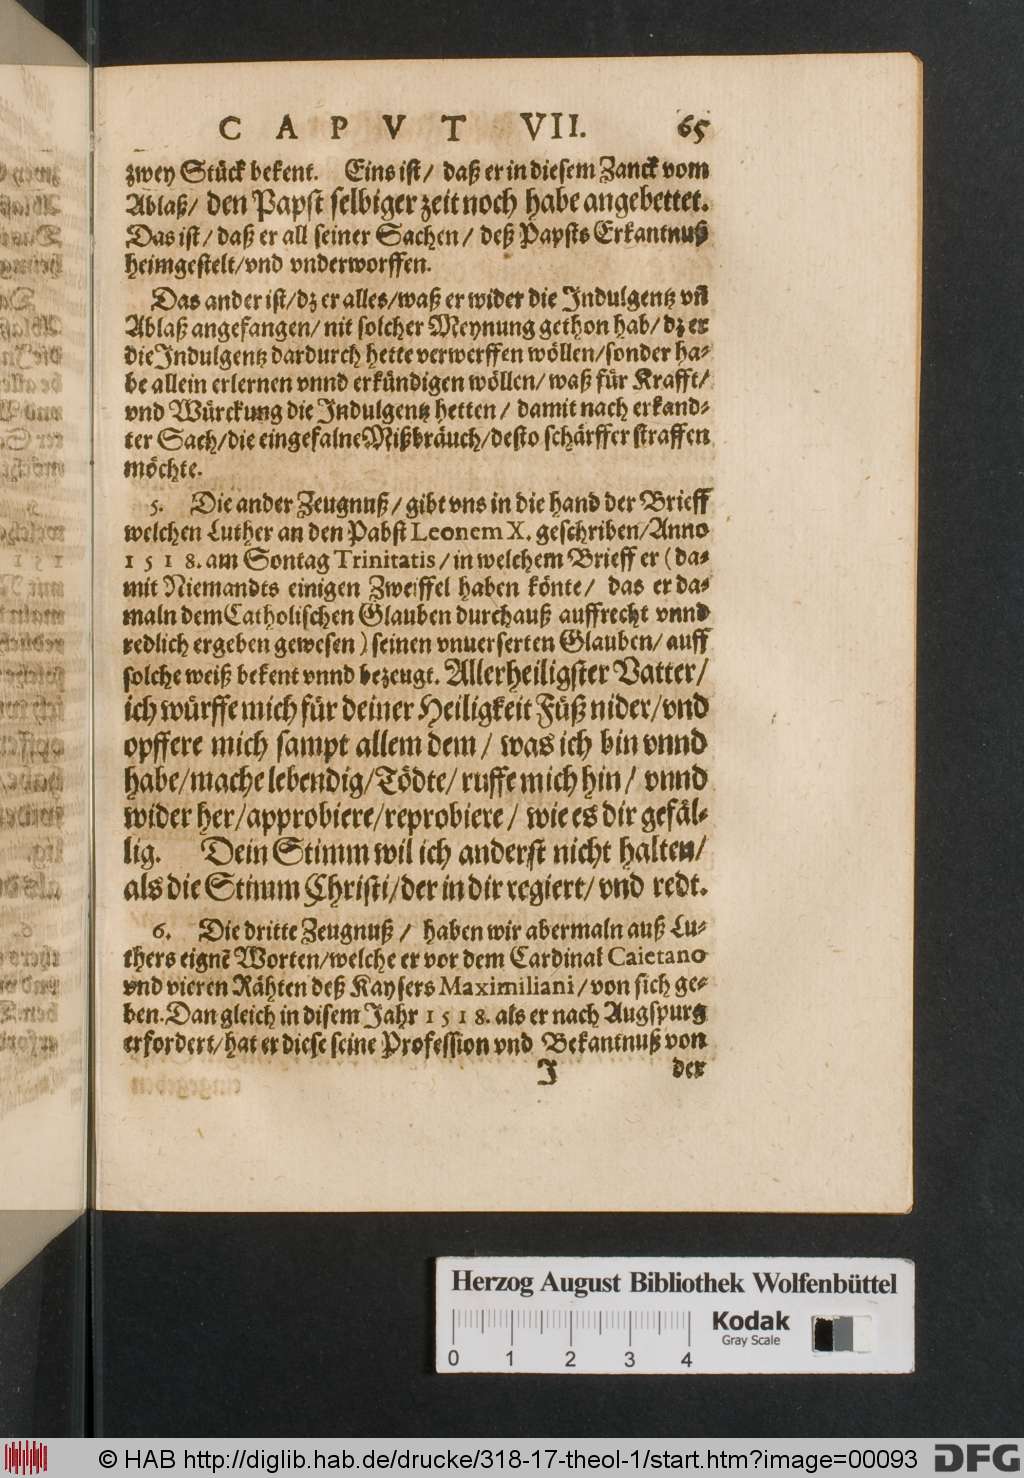 CAPVT VII. 65
zwey Stück bekent. Eins ist / daß er in diesem Zanck vom
Ablaß / den Papst selbiger zeit noch habe angebettet.
Das ist / daß er all seiner Sachen / deß Papsts Erkantnuß
heimgestelt / vnd vnderworffen.
Das ander ist / dz er alles / waß er wider die Indulgentz vñ
Ablaß angefangen / nit solcher Meynung gethon hab / dz er
die Indulgentz dardurch hette verwerffen wöllen / sonder ha-
be allein erlernen vnnd erkündigen wöllen / waß für Krafft /
vnd Würckung die Indulgentz hetten / damit nach erkand-
ter Sach / die eingefalne Mißbräuch / desto schärffer straffen
möchte.
5. Die ander Zeugnuß / gibt vns in die hand der Brieff
welchen Luther an den Pabst Leonem X. geschriben / Anno
1518. am Sontag Trinitatis / in welchem Brieff er (da-
mit Niemandts einigen Zweiffel haben könte / das er da-
maln dem Catholischen Glauben durchauß auffrecht vnnd
redlich ergeben gewesen) seinen vnuerserten Glauben / auff
solche weiß bekent vnnd bezeugt. Allerheiligster Vatter /
ich würffe mich für deiner Heiligkeit Füß nider / vnd
opffere mich sampt allem dem / was ich bin vnnd
habe / mache lebendig / Tödte / ruffe mich hin / vnnd
wider her / approbiere / reprobiere / wie es dir gefäl-
lig. Dein Stimm wil ich anderst nicht halten /
als die Stimm Christi / der in dir regiert / vnd redt.
6. Die dritte Zeugnuß / haben wir abermaln auß Lu-
thers eignẽ Worten / welche er vor dem Cardinal Caietano
vnd vieren Rähten deß Kaysers Maximiliani / von sich ge-
ben. Dan gleich in disem Jahr 1518. als er nach Augspurg
erfordert / hat er diese seine Profession vnd Bekantnuß von
J der
Herzog August Bibliothek Wolfenbüttel
Kodak
Gray Scale
0 1 2 3 4
© HAB http://diglib.hab.de/drucke/318-17-theol-1/start.htm?image=00093 DFG